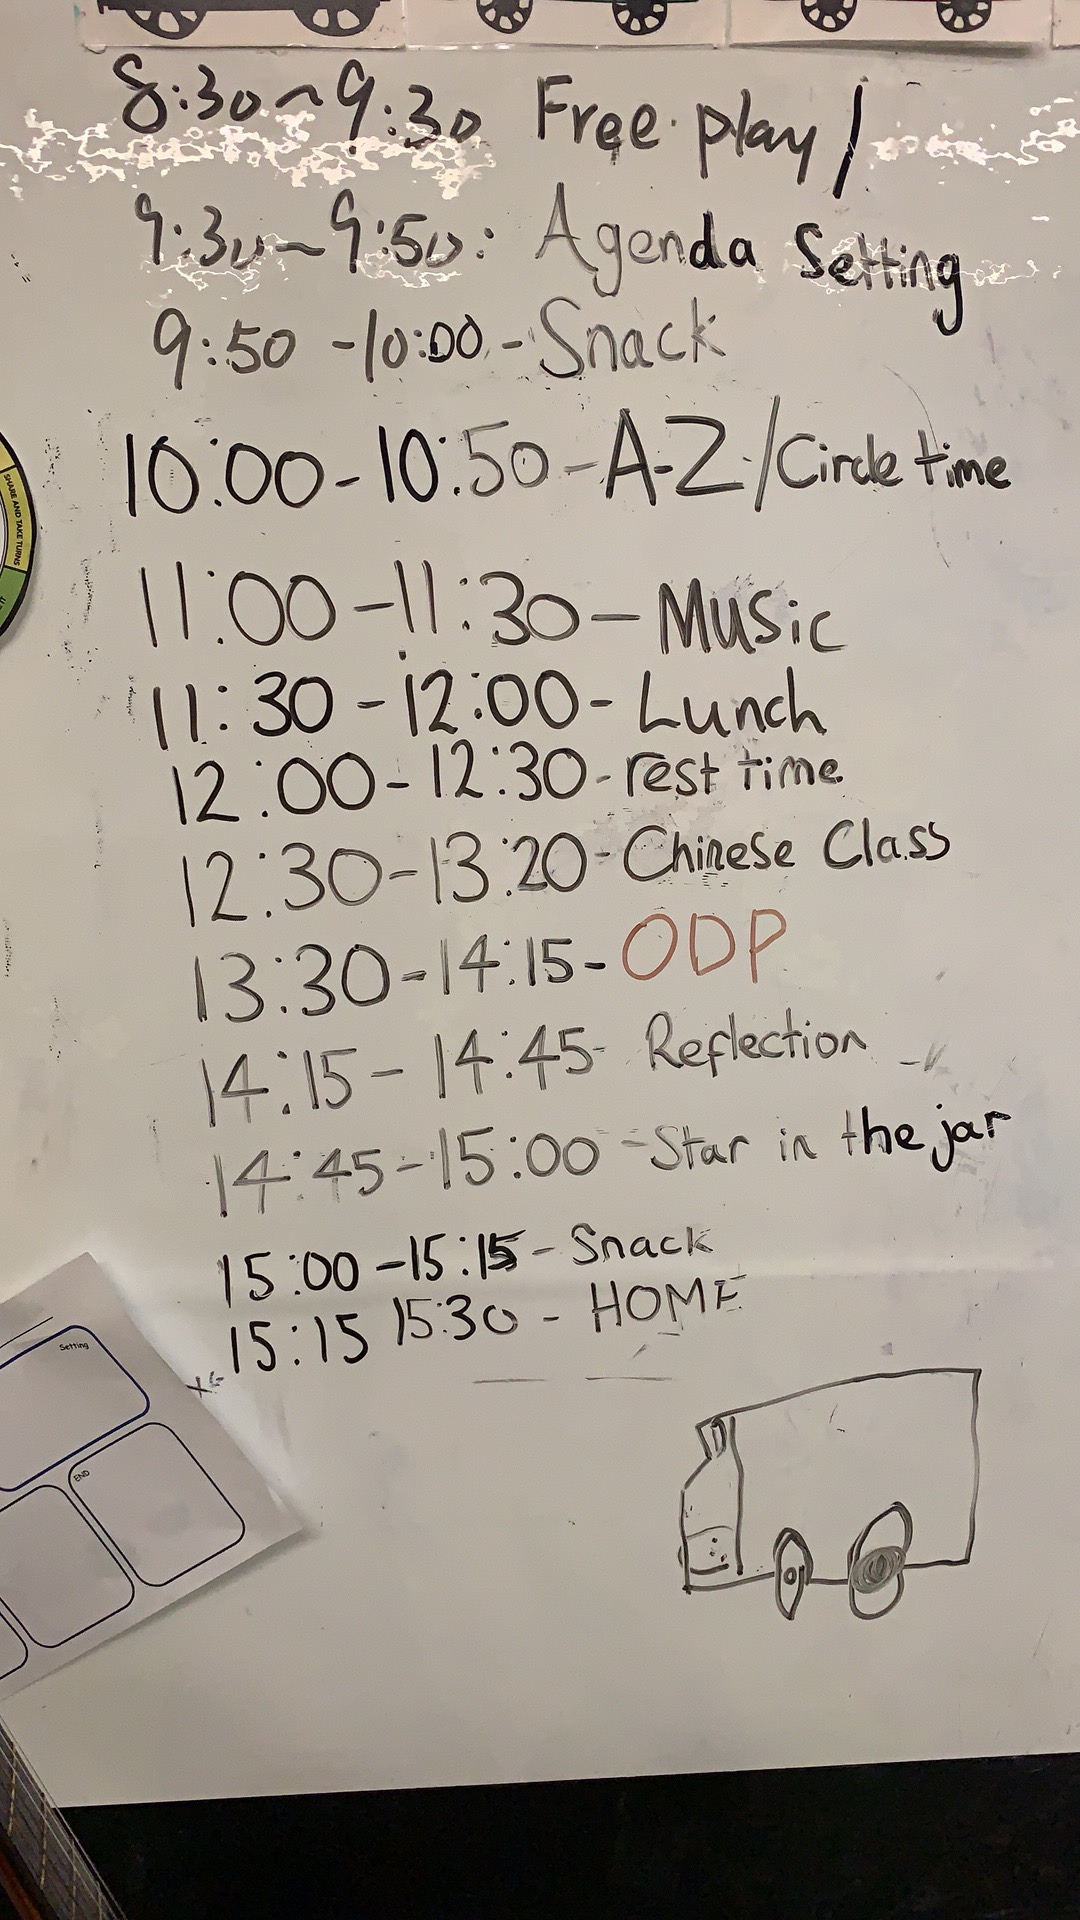 8:30~9:30 Free play/
9:30~9:50: Agenda Setting
9:50 -10:00 - Snack
10:00-10:50-A-Z/Circle time
11:00-11:30-Music
11:30-12:00-Lunch
12:00-12:30-rest time
12:30-13:20-Chinese Class
13:30-14:15-ODP
14:15-14:45- Reflection
14:45-15:00-Star in the jar
15:00-15:15-Snack
15:15 15:30 - HOME
SHARE AND TAKE TURNS
Setting
END